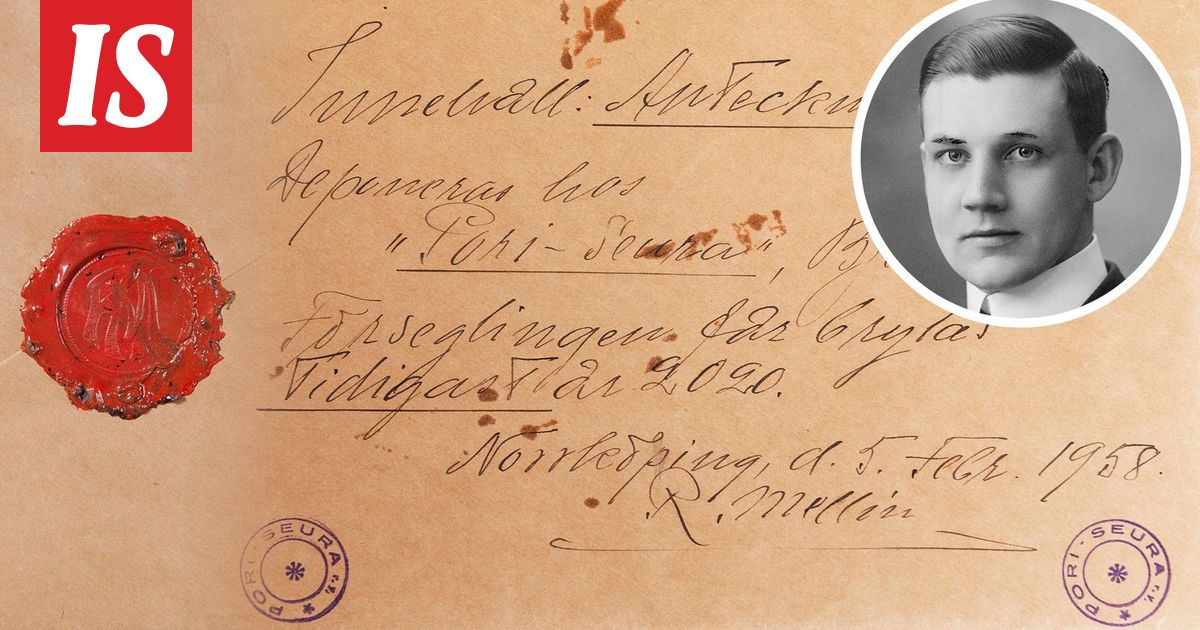 IS
Innehåll: Anteckn
Deponeras hos
"Pori-Seura", Bj
Förseglingen får brytas
Tidigast år 2020.
Norrköping, d. 5. Febr. 1958.
R. Mellin
PORI-SEURA r.y.
PORI-SEURA r.y.